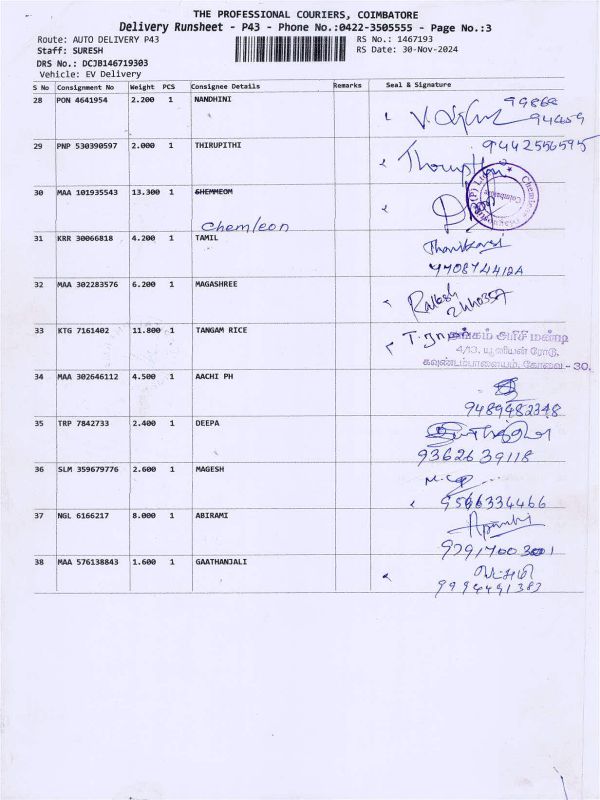 THE PROFESSIONAL COURIERS, COIMBATORE
Delivery Runsheet - P43 - Phone No.:0422-3505555 - Page No.:3
Route: AUTO DELIVERY P43 RS No.: 1467193
Staff: SURESH RS Date: 30-Nov-2024
DRS No.: DCJB146719303
Vehicle: EV Delivery
S No Consignment No Weight PCS Consignee Details Remarks Seal & Signature
28 PON 4641954 2.200 1 NANDHINI
29 PNP 530390597 2.000 1 THIRUPITHI 9442556595
30 MAA 101935543 13.300 1 SHEMMEOM
Chemleon
31 KRR 30066818 4.200 1 TAMIL
32 MAA 302283576 6.200 1 MAGASHREE
Rakesh
33 KTG 7161402 11.800 1 TANGAM RICE தங்கம் அரிசி மண்டி
4/13, யூனியன் ரோடு,
கவுண்டம்பாளையம், கோவை - 30.
34 MAA 302646112 4.500 1 AACHI PH
9489482348
35 TRP 7842733 2.400 1 DEEPA
9362639118
36 SLM 359679776 2.600 1 MAGESH
9566334466
37 NGL 6166217 8.000 1 ABIRAMI
9791700 3001
38 MAA 576138843 1.600 1 GAATHANJALI
9994491383